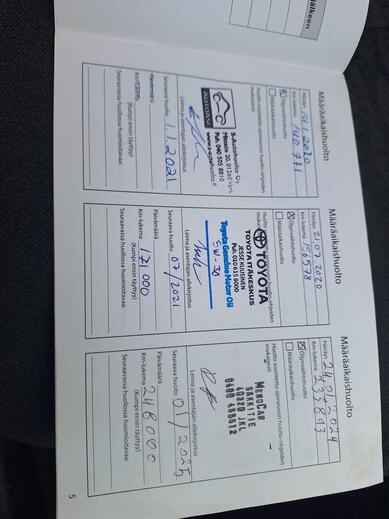 Määräaikaishuolto
Päiväys 14.1.2020
Km-lukema 140 771
Öljynvaihtohuolto
Määräaikaishuolto
Huolto suoritettu ajoneuvon huolto-ohjeiden
mukaisesti
S-Autohuolto Oy
Puh. 040 505 8810
AUTODAS
Leima ja asentajan allekirjoitus
Seuraava huolto 1.1.2021
Päivämäärä
Km-lukema
(Kumpi ensin täyttyy)
Seuraavassa huollossa huomioitavaa:
Määräaikaishuolto
Päiväys 21.07.2020
Km-lukema 156578
Öljynvaihtohuolto
Määräaikaishuolto
TOYOTA
TOYOTA ITÄKESKUS
JESSE KUUSINEN
Puh. 010 615 8000
Toyota Genuine Motor Oil
5W-30
Leima ja asentajan allekirjoitus
Seuraava huolto 07/2021
Päivämäärä
Km-lukema 171 000
(Kumpi ensin täyttyy)
Seuraavassa huollossa huomioitavaa:
Määräaikaishuolto
Päiväys 24.01.2024
Km-lukema 233893
Öljynvaihtohuolto
Määräaikaishuolto
Huolto suoritettu ajoneuvon huolto-ohjeiden
mukaisesti
MenoCar
40320 JKL
0400 456512
Leima ja asentajan allekirjoitus
Seuraava huolto 01/2025
Päivämäärä
Km-lukema 248000
(Kumpi ensin täyttyy)
Seuraavassa huollossa huomioitavaa:
5